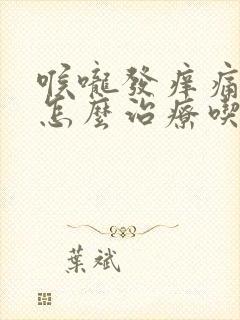 喉嚨發痒痛
怎麼治療喫
葉斌